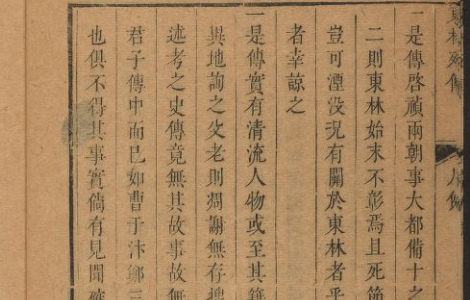 東林列傳
凡例
一是傳啓禎兩朝事大都備十之
二則東林始末不彰焉且死節
豈可湮没況有關於東林者乎
者幸諒之
一是傳實有清流人物或至其籍
異地詢之父老則凋謝無存搜
述考之史傳竟無其故事故無
君子傳中而已如曹于汴鄉三
也俱不得其事實倘有見聞確